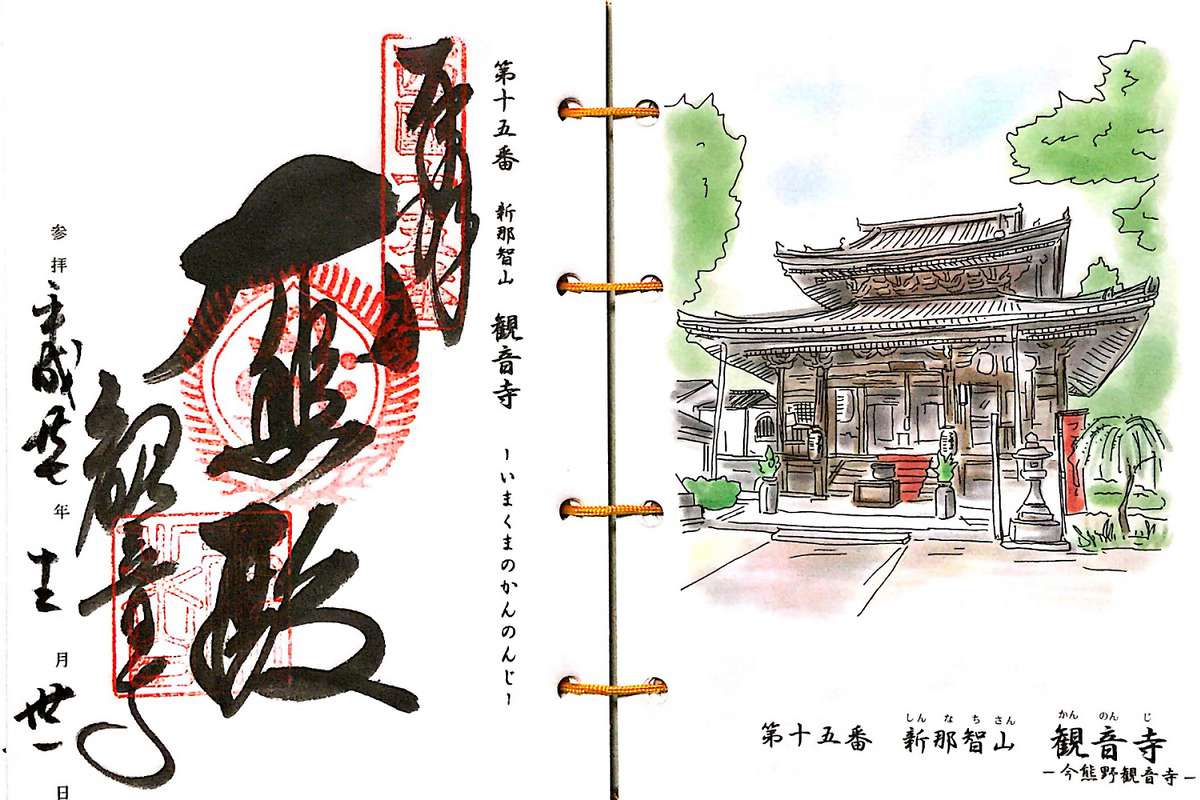 第十五番 新那智山 観音寺 -いまくまのかんのんじ-
奉拝
大悲殿
観音寺
参拝 平成 年 月 日
しんなちさん かんのんじ
第十五番 新那智山 観音寺
-今熊野観音寺-